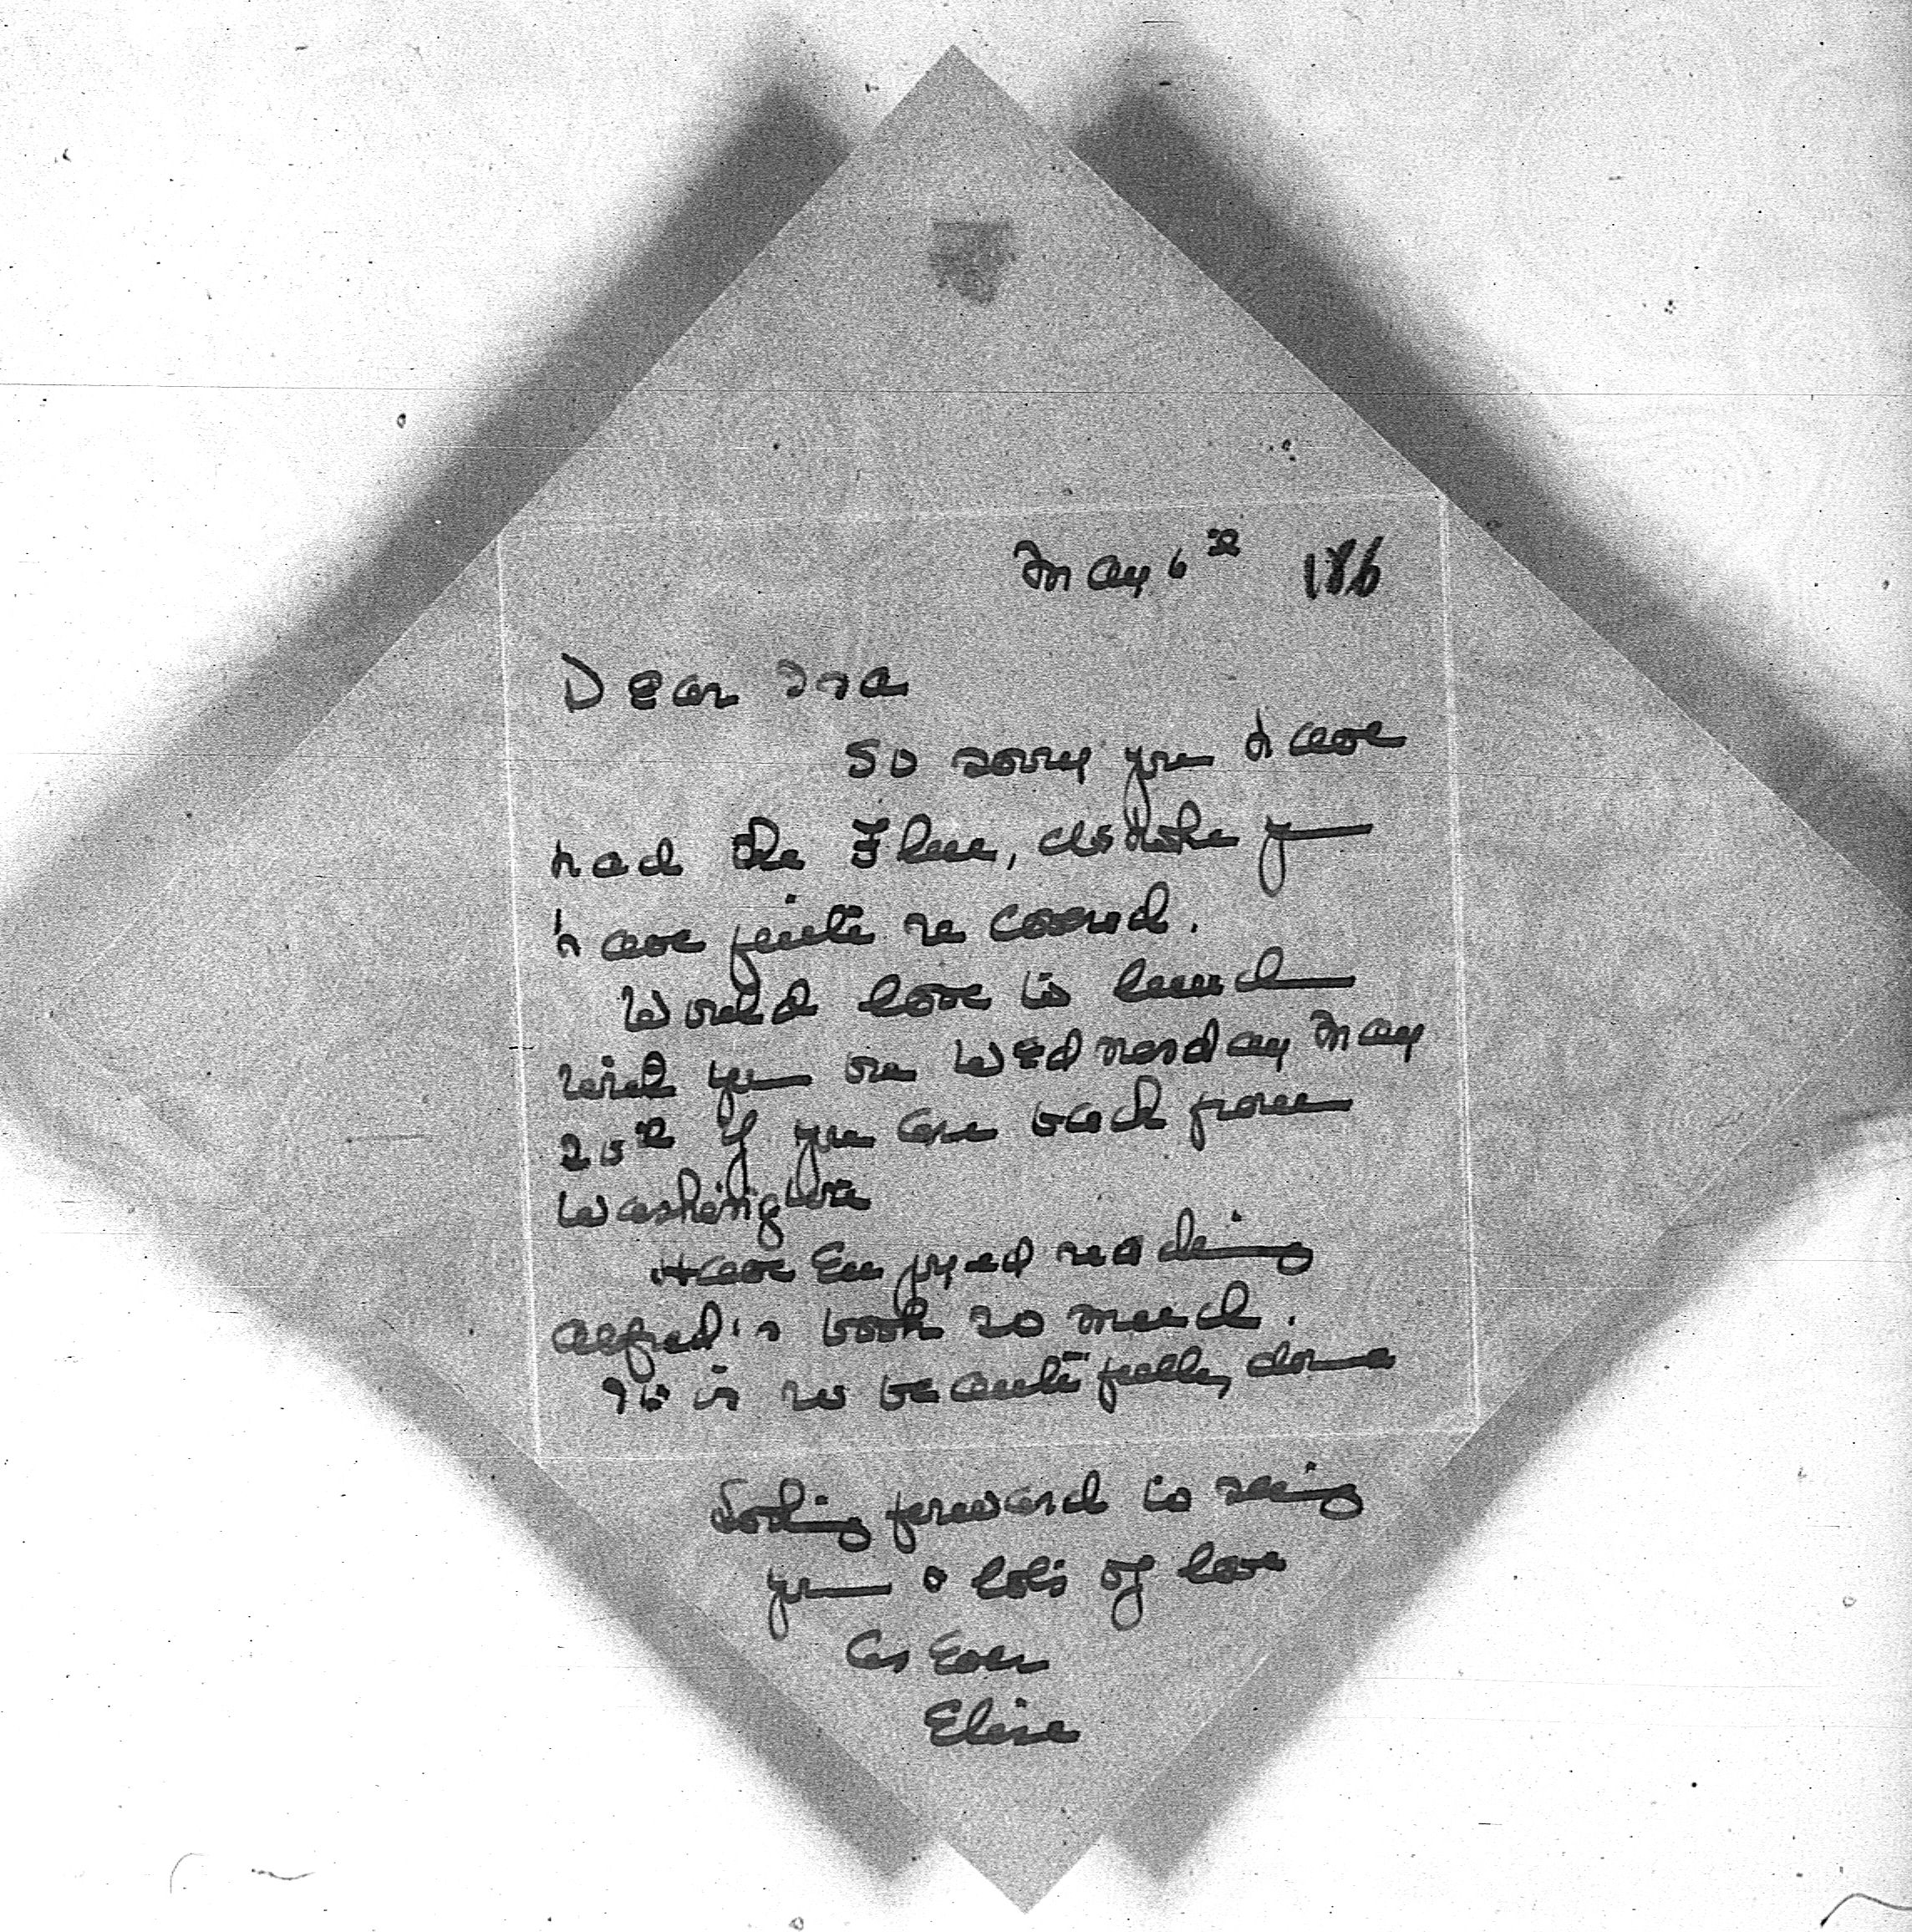 May 6th 186
Dear Isa
So sorry you have
had the Flue, do hope you
have quite recovered.
Would love to lunch
with you on Wednesday May
20th if you are back from
Washington
Have Enjoyed reading
Alfred's book so much.
It is so beautifully done
Looking forward to seeing
you & lots of love
As Ever
Elise